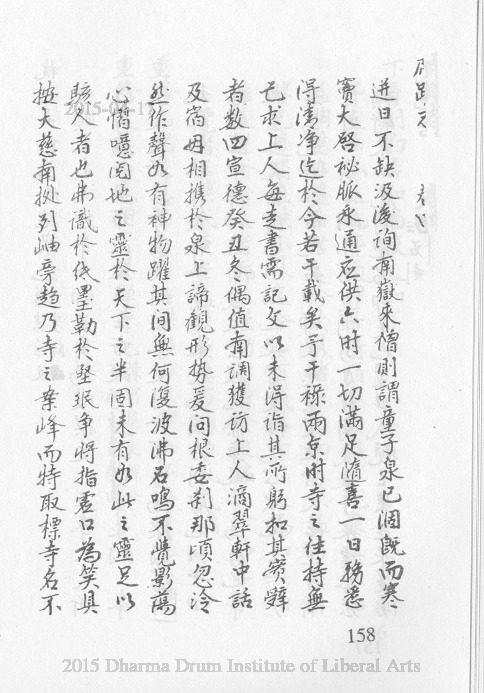 迸日不缺汲後詢南嶽來僧則謂童子泉已涸既而寒
竇大啓祕脈永通应供六时一切滿足隨喜一日務悉
得清净迄於今若干載矣予干祿兩京时寺之住持無
已求上人每走書需記文以未得詣其所躬扣其實辟
者数四宣德癸丑冬偶值南调獲访上人滴翠軒中話
及爲毋相携於泉上諦觀形势爰问根委刹那頃忽泠
然作聲如有神物躍其间無何復波沸石鳴不覺影蕩
心憯噫閱地之靈於天下之半固未有如此之靈足以
駭人者也弗識於侯墨勒於堅珉争将指爲口為笑具
極大慈南拠列岫旁趋乃寺之案峰而特取標寺名不
158
2015-04-17
2015 Dharma Drum Institute of Liberal Arts